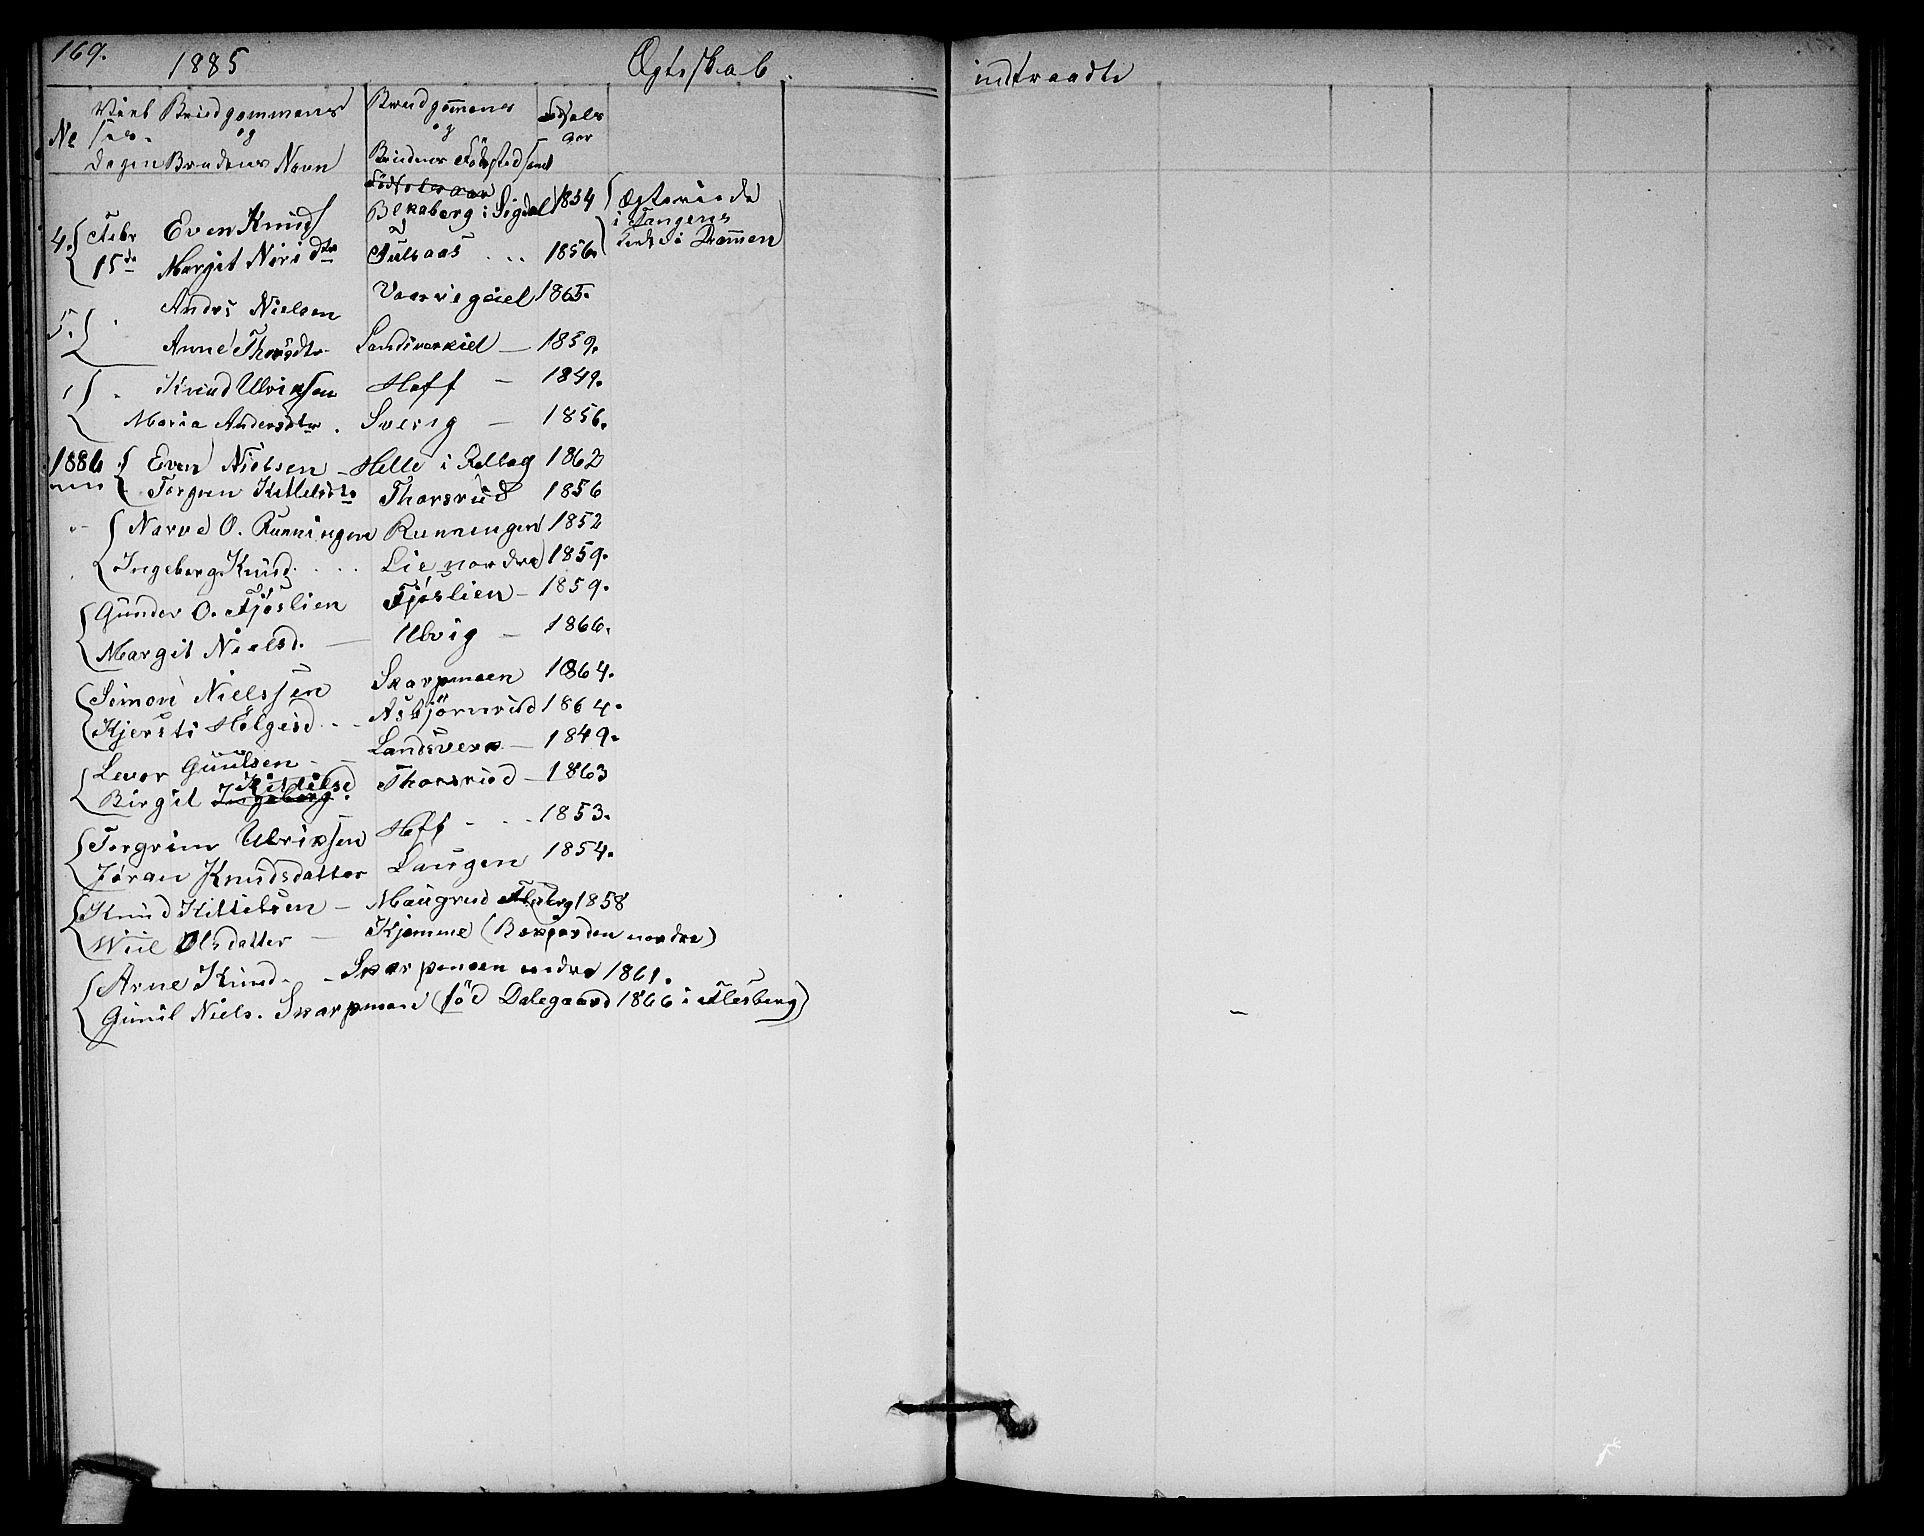 169. 1885 Ægtsskab indtraadte
No Vielsesdagen Brudgommens og Brudens Navn Brudgomens og Brudens Födested samt Födselsaar Födsels aar
4. Febr 15de Even Knuds Blekaberg i Sigdal 1854 Ægteviede
i Tangens
Kirke i Drammen
Margit Nirisdtr Juls aas . . . 1856.
5. Andrs Nielsen 1865.
Anne Thorsdtr Landsverkiel — 1859.
Knud Ulriksen Hoff — 1849.
Maria Andersdtr . Sverig — 1856.
1886 Even Nielsen - Helle i Rollag 1862
Torgun Kittelsdtr Thorsrud 1856
Narve O. Runningen Runningen 1852
Ingeborg Knud. . . . Lie nordre 1859.
Gunder O. Fjøslien Fjøslien - 1859.
Margit Nielsd. — Ulvig — 1866.
Simon Nielssen Skarpmoen 1864.
Kjersti Helgesd . . Asbjörnrud 1864.
Levor Guulsen - Landsverk — 1849.
Birgit Ingeborg Kittelsd. Thorsrud - 1863
Torgrim Ulriksen Hoff - . . 1853.
Jøran Knudsdatter Laugen 1854.
Knud Kittelsen — Maugrud Flesberg 1858
Wiil Olsdatter — Kjomme (Bakjorden nordre)
Arne Knud. . Skarpmoen nedre 1861.
Gunil Niels. Skarpmoen (föd Dalegaard 1866 i Flesberg)